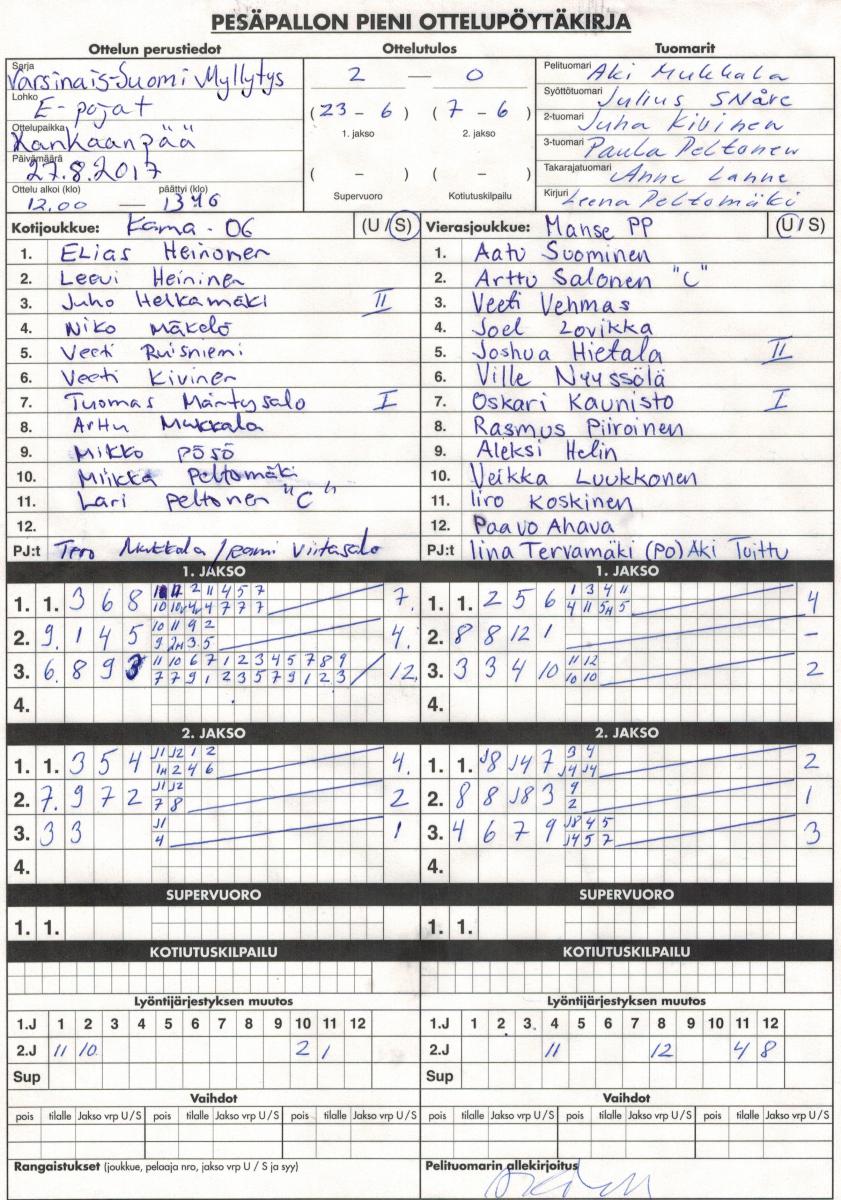 PESÄPALLON PIENI OTTELUPÖYTÄKIRJA
Ottelun perustiedot
Sarja
Varsinais-Suomi Myllytys
Lohko
E-pojat
Ottelupaikka
Kankaanpää
Päivämäärä
27.8.2017
Ottelu alkoi (klo) päättyi (klo)
12.00 — 1346
Ottelutulos
2 — 0
(23 - 6) (7 - 6)
1. jakso 2. jakso
( - ) ( - )
Supervuoro Kotiutuskilpailu
Tuomarit
Pelituomari Aki Mukkala
Syöttötuomari Julius SNåre
2-tuomari Juha Kivinen
3-tuomari Paula Peltonen
Takarajatuomari Anne Lanne
Kirjuri Leena Peltomäki
Kotijoukkue: Kama - 06 (U / S)
1. Elias Heinonen
2. Leevi Heininen
3. Juho Helkamäki II
4. Niko Mäkelä
5. Veeti Ruisniemi
6. Veeti Kivinen
7. Tuomas Mäntysalo I
8. Arttu Mukkala
9. Mikko Pösö
10. Miikka Peltomäki
11. Lari Peltonen "C"
12.
PJ:t Mukkala / Viitasalo
Vierasjoukkue: Manse PP (U / S)
1. Aatu Suominen
2. Arttu Salonen "C"
3. Veeti Vehmas
4. Joel Lovikka
5. Joshua Hietala II
6. Ville Nyyssölä
7. Oskari Kaunisto I
8. Rasmus Piiroinen
9. Aleksi Helin
10. Veikka Luukkonen
11. Iiro Koskinen
12. Paavo Ahava
PJ:t Iina Tervamäki (PO) Aki Tuittu
1. JAKSO
1. 1. 3 6 8 2 11 4 5 7 7.
10 10 4 7 7 7
2. 9. 1 4 5 10 11 9 2 4.
9 3 5
3. 6. 8 9 3 11 10 6 7 1 2 3 4 5 7 8 9 12.
7 7 9 1 2 3 5 7 9 1 2 3
4.
1. JAKSO
1. 1. 2 5 6 1 3 4 11 4
4 11 5H 5
2. 8 8 12 1 -
3. 3 3 4 10 11 12 2
10 10
4.
2. JAKSO
1. 1. 3 5 4 J1 J2 1 2 4.
1H 2 4 6
2. 7. 9 7 2 J1 J2 2
7 8
3. 3 3 J1 1
4
4.
2. JAKSO
1. 1. J8 J4 7 3 4 2
J4 J4
2. 8 8 J8 3 9 1
2
3. 4 6 7 9 J8 4 5 3
J4 5 7
4.
SUPERVUORO
1. 1.
SUPERVUORO
1. 1.
KOTIUTUSKILPAILU
KOTIUTUSKILPAILU
Lyöntijärjestyksen muutos
1.J 1 2 3 4 5 6 7 8 9 10 11 12
2.J 11 10 2 1
Sup
Lyöntijärjestyksen muutos
1.J 1 2 3 4 5 6 7 8 9 10 11 12
2.J 11 12 4 8
Sup
Vaihdot
pois tilalle Jakso vrp U / S pois tilalle Jakso vrp U / S pois tilalle Jakso vrp U / S
Vaihdot
pois tilalle Jakso vrp U / S pois tilalle Jakso vrp U / S pois tilalle Jakso vrp U / S
Rangaistukset (joukkue, pelaaja nro, jakso vrp U / S ja syy)
Pelituomarin allekirjoitus